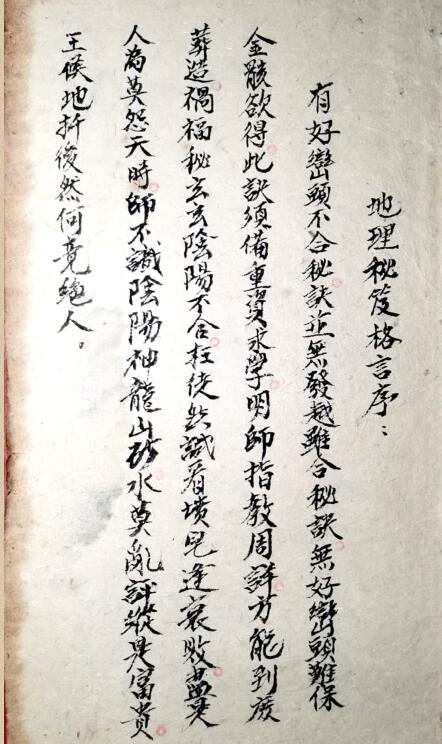 地理秘笈格言序：
有好巒頭不合秘訣並無發越雖合秘訣無好巒頭難保
金骸欲得此訣須備重資求學明師指教周詳方能到度
葬造禍福秘玄玄陰陽不合枉徒然試看墳兒逢衰敗盡是
人為莫怨天時師不識陰陽神龍山砂水莫亂評縱是富貴
王侯地拆後然何竟絕人。